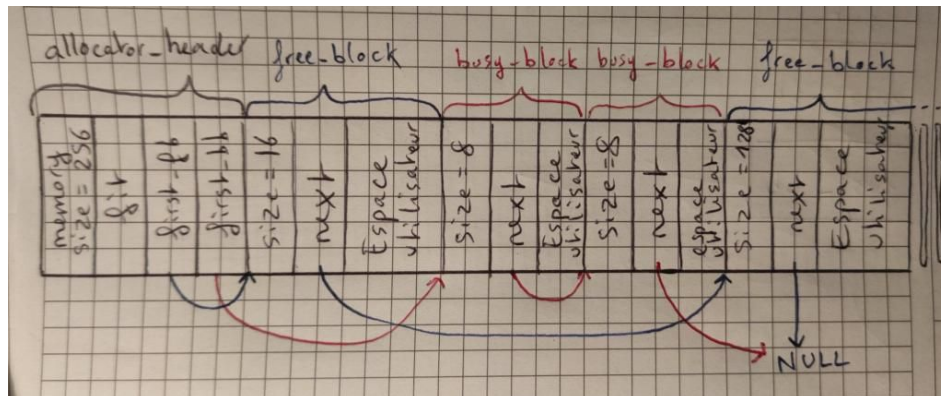 allocator_header
free_block
busy_block
busy_block
free_block
memory
size = 256
fit
first_fb
first_bb
size = 16
next
Espace
utilisateur
size = 8
next
Espace
utilisateur
size = 8
next
espace
utilisateur
size = 128
next
Espace
utilisateur
NULL